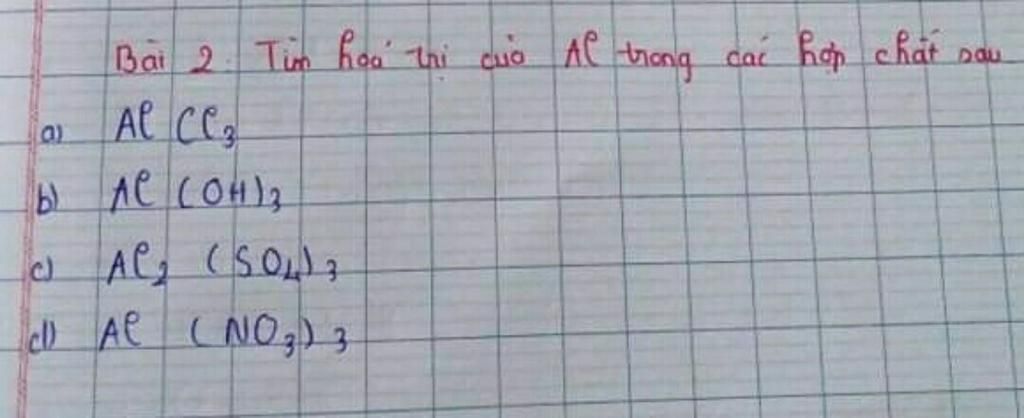 Bài 2. Tìm hoá trị của Al trong các hợp chất sau
a) AlCl₃
b) Al(OH)₃
c) Al₂(SO₄)₃
d) Al(NO₃)₃